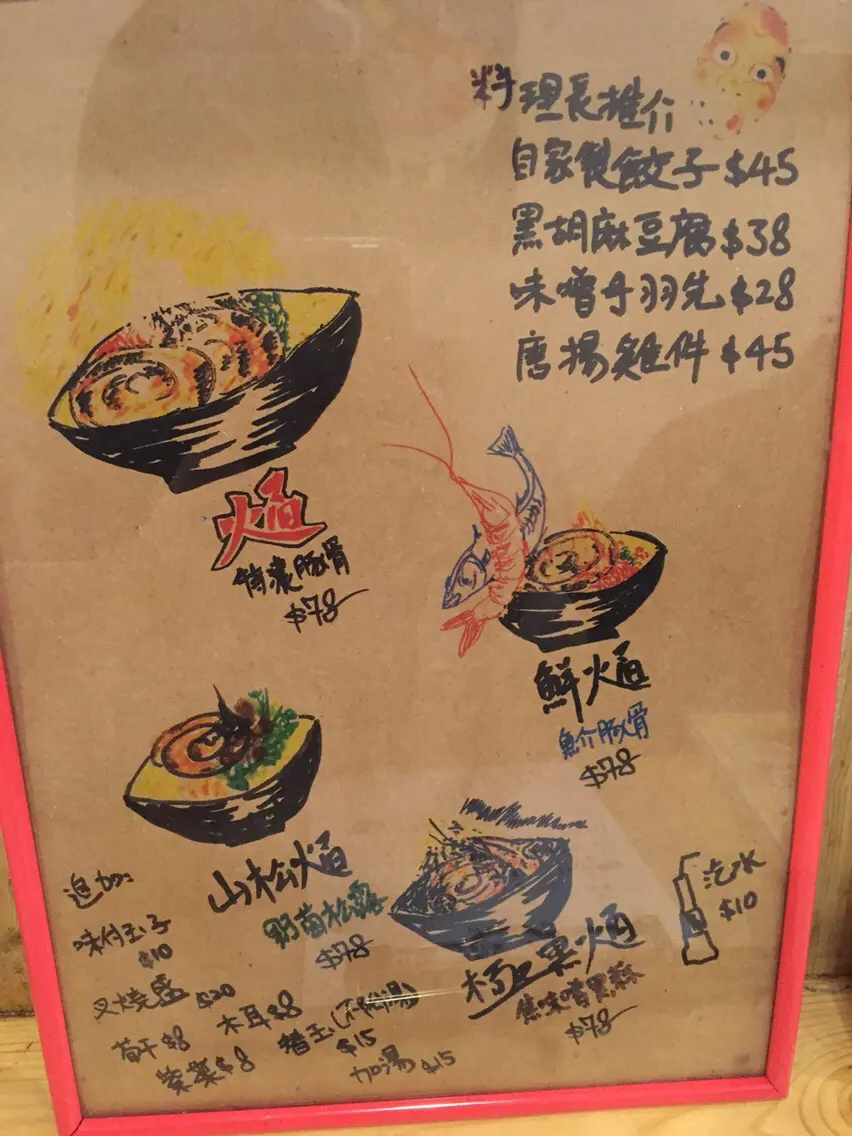 料理長推介
自家製餃子$45
黑胡麻豆腐$38
味噌手羽先$28
唐揚雞件$45
焰
特濃豚骨
$78
鮮焰
魚介豚骨
$78
山松焰
野菌松露
$78
極黑焰
焦味噌黑蒜
$78
汽水
$10
追加:
味付玉子
$10
叉燒盛$20
筍干$8
木耳$8
紫菜$8
替玉(不附湯)
$15
加湯$15